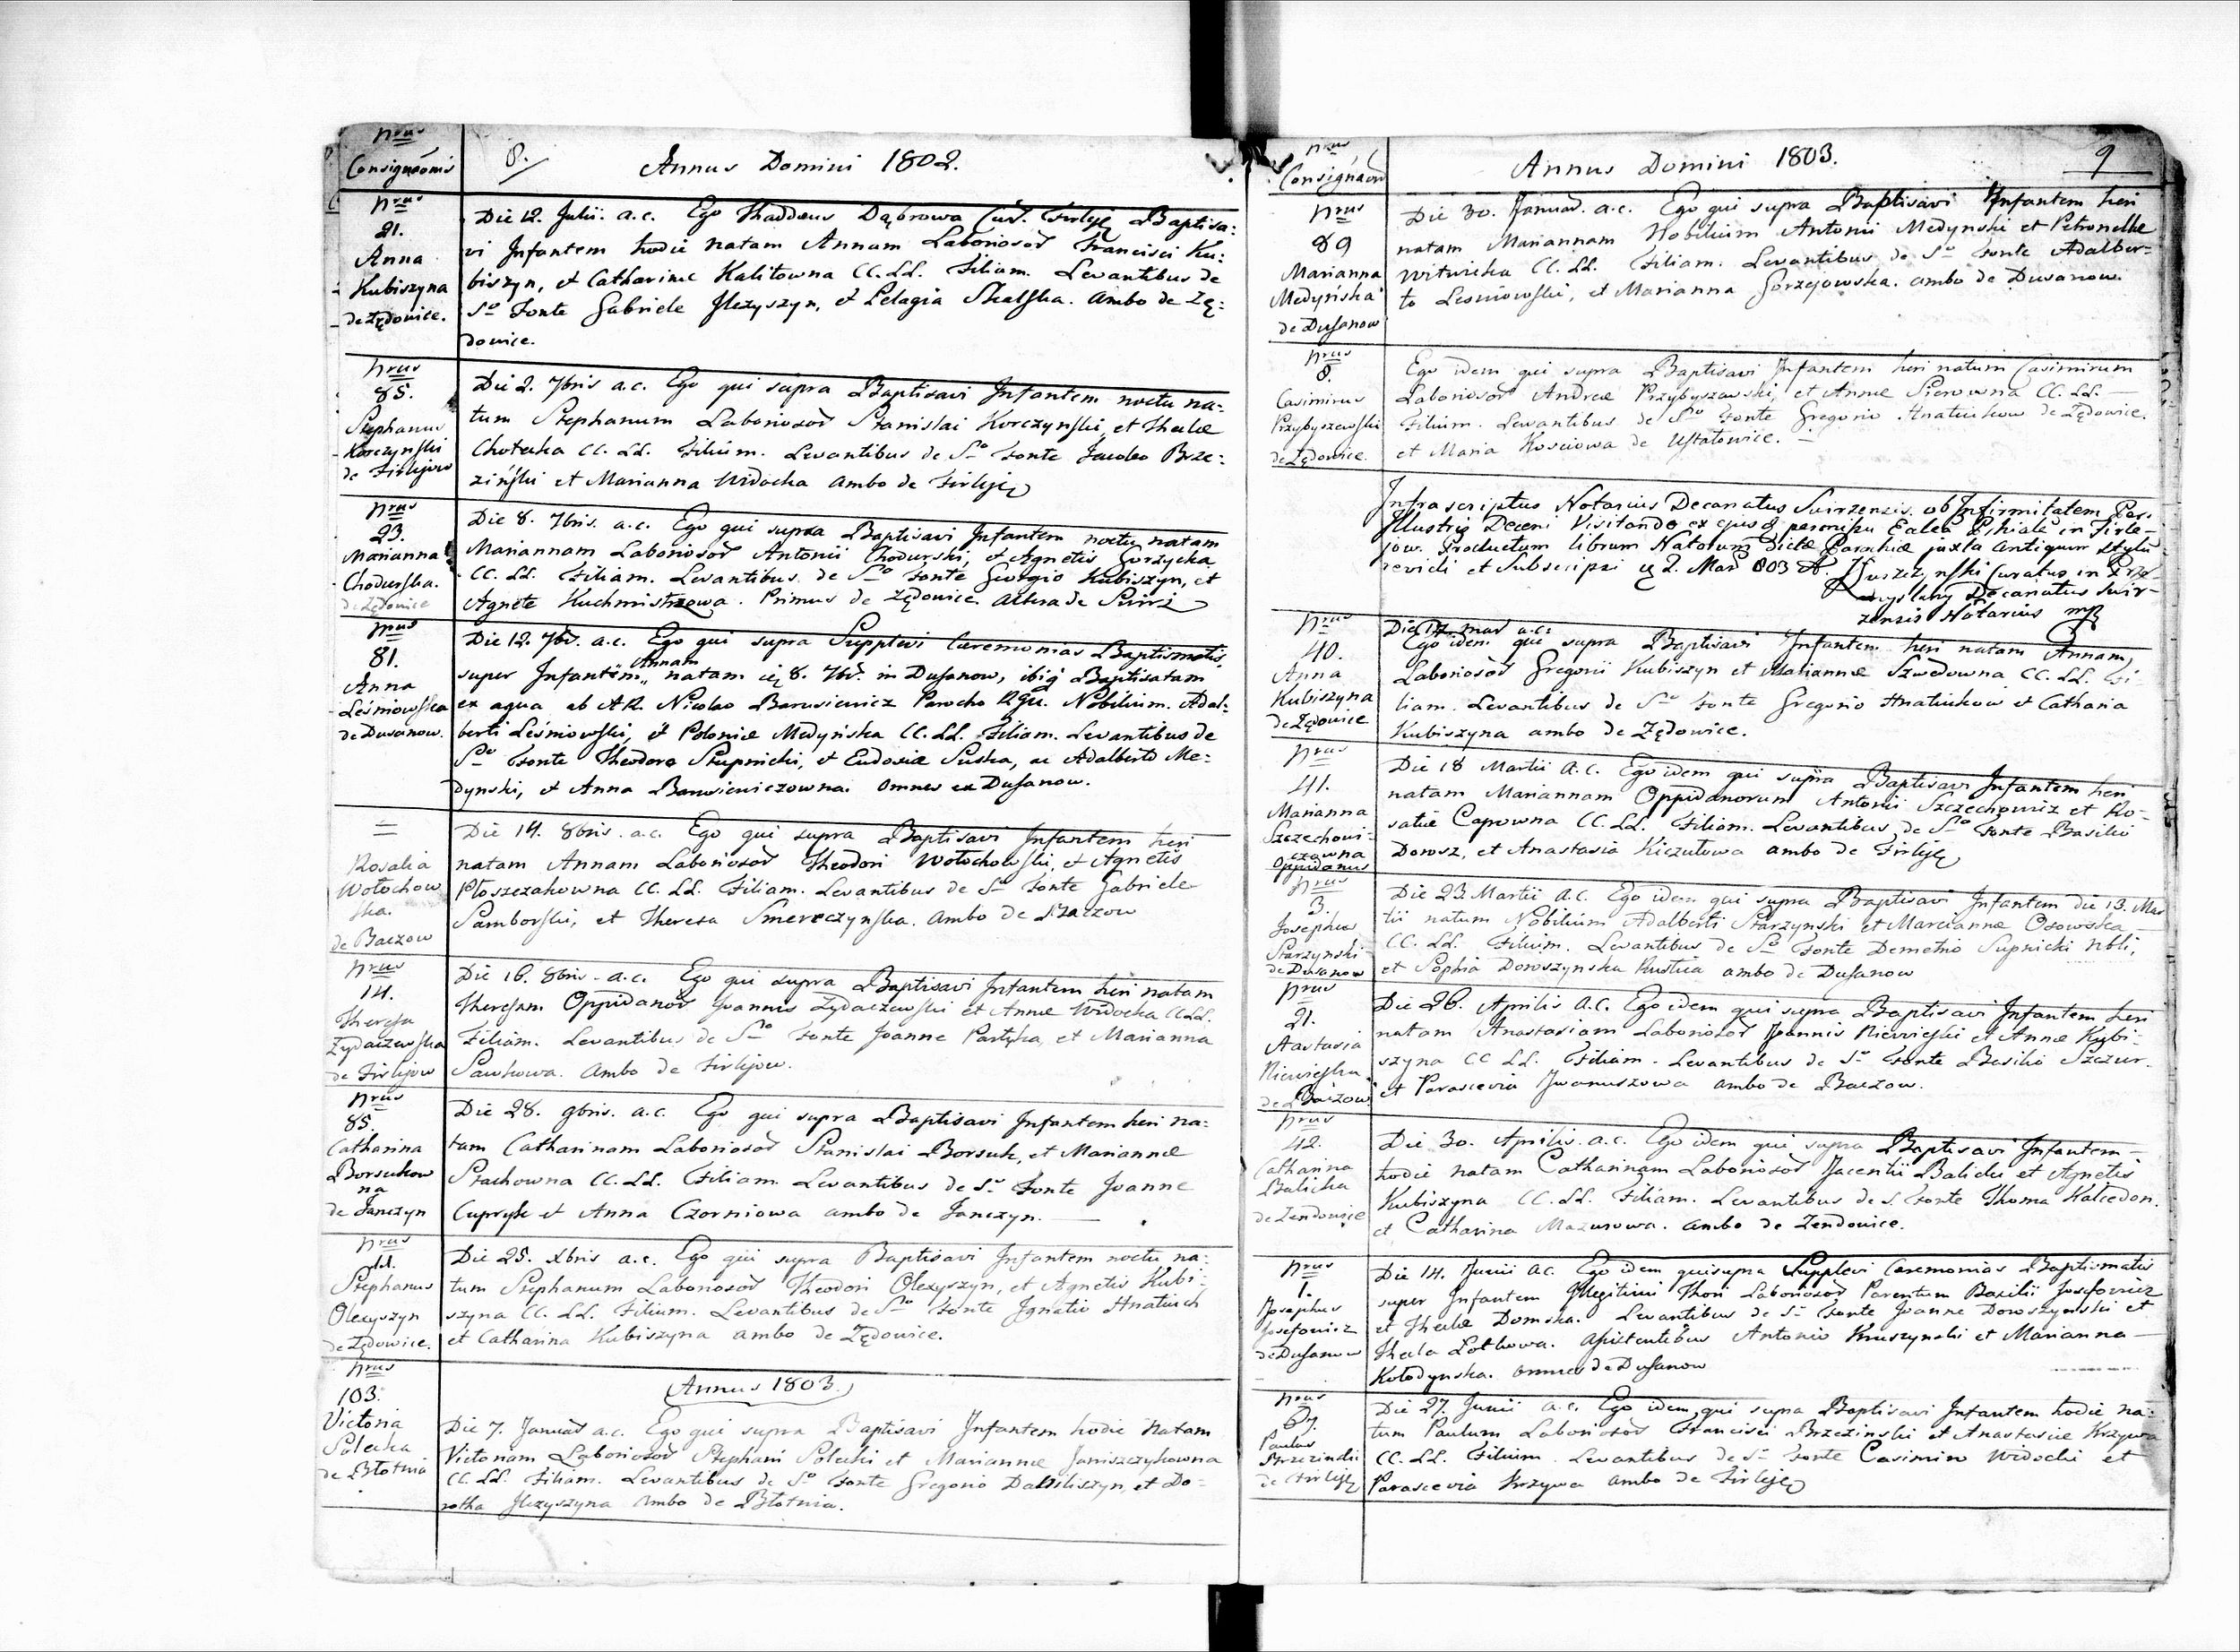 Nrus
Consignaōnis
8.
Annus Domini 1802.
Nrus
21.
Anna
Kubiszyna
de Zędowice.
Die 12. Julii. a.c. Ego Thaddæus Dąbrowa Cur. Firleję Baptisa:
vi Infantem hodie natam Annam Laboriosor̃ Francisci Ku:
biszyn, et Catharinæ Kalitowna CC. LL. Filiam. Levantibus de
So Fonte Gabriele Jlczyszyn, et Pelagia Skalska. Ambo de Zę:
dowice.
Nrus
85.
Stephanus
Korczynski
de Firlejow
Die 2. 7bris a.c. Ego qui supra Baptisavi Infantem noctu na:
tum Stephanum Laboriosor̃ Stanislai Korczynski, et Theclæ
Chotecka CC. LL. Filium. Levantibus de So Fonte Jacobo Brze:
ziński et Marianna Widacka Ambo de Firleję
Nrus
23.
Marianna
Chodurska.
de Zędowice
Die 8. 7bris. a.c. Ego qui supra Baptisavi Infantem noctu natam
Mariannam Laboriosor̃ Antonii Chodurski, et Agnetis Gorzycka
CC. LL. Filiam. Levantibus de So Fonte Georgio Kubiszyn, et
Agnete Kuchmistrzowa. Primus de Zędowice. Altera de Swirz
Nrus
81.
Anna
Leśniowska
de Dusanow.
Die 12. 7br. a.c. Ego qui supra Supplevi Cæremonias Baptismatis
super Infantem Annam natam 8. 7br. in Dusanow, ibiq Baptisatam
ex aqua ab AR. Nicolao Barusiewicz Parocho RGr. Nobilium. Adal:
berti Leśniowski, et Poloniæ Medyńska CC. LL. Filiam. Levantibus de
So Fonte Theodoro Stupnicki, et Eudosia Suska, ac Adalberto Me:
dynski, et Anna Barusiewiczowna. Omnes ex Dusanow.
=
Rosalia
Wołochow
ska.
de Baczow
Die 14. 8bris. a.c. Ego qui supra Baptisavi Infantem heri
natam Annam Laboriosor̃ Theodori Wołochowski, et Agnetis
Płoszczakowna CC. LL. Filiam. Levantibus de So Fonte Gabriele
Samborski, et Theresa Smereczynska. Ambo de Baczow
Nrus
14.
Theresa
Zydaczewska
de Firlejow
Die 16. 8bris. a.c. Ego qui supra Baptisavi Infantem heri natam
Theresam Oppidanor̃ Joannis Zydaczewski et Annæ Widacka CC.LL.
Filiam. Levantibus de So Fonte Joanne Partyka, et Marianna
Sawkowa. Ambo de Firlejow.
Nrus
85.
Catharina
Borsukow
na
de Janczyn
Die 28. 9bris. a.c. Ego qui supra Baptisavi Infantem heri na:
tam Catharinam Laboriosor̃ Stanislai Borsuk, et Mariannæ
Stachowna CC. LL. Filiam. Levantibus de So Fonte Joanne
Cupryk et Anna Czorniowa ambo de Janczyn.
Nrus
11.
Stephanus
Olexyszyn
de Zędowice.
Die 25. Xbris a.c. Ego qui supra Baptisavi Infantem noctu na:
tum Stephanum Laboriosor̃ Theodori Olexyszyn, et Agnetis Kubi:
szyna CC. LL. Filium. Levantibus de So Fonte Ignatio Hnatiuch
et Catharina Kubiszyna ambo de Zędowice.
Nrus
103.
Victoria
Solecka
de Błotnia
Annus 1803.
Die 7. Januar̃ a.c. Ego qui supra Baptisavi Infantem hodie Natam
Victoriam Laboriosor̃ Stephani Solecki et Mariannæ Janiszczykowna
CC. LL. Filiam. Levantibus de So Fonte Gregorio Daniliszyn, et Do:
rotha Jlczyszyna Ambo de Błotnia.
Nrus
Consignaōn
Annus Domini 1803.
9
Nrus
89
Marianna
Medyńska
de Dusanow
Die 30. Januar̃. a.c. Ego qui supra Baptisavi Infantem heri
natam Mariannam Nobilium Antonii Medynski et Petronellæ
Witwicka CC. LL. Filiam. Levantibus de So Fonte Adalber-
to Lesniowski, et Marianna Gorzejowska. ambo de Dusanow.
Nrus
8.
Casimirus
Przybyszewski
de Zędowice.
Ego idem qui supra Baptisavi Infantem heri natum Casimirum
Laboriosor̃ Andreæ Przybyszewski, et Annæ Sierowna CC. LL.
Filium. Levantibus de So Fonte Gregorio Hnatiukow de Zędowice.
et Maria Kosciowa de Uszkowice.
Infrascriptus Notarius Decanatus Swirzensis. ob Infirmitatem Per.
Illustris Decani Visitando ex ejusq permissu Ecclea Pchiale in Firle-
jow. Productum librum Natorum dictæ Parochiæ juxta antiquum stylu
revidi et Subscripsi 2. Mar 803
Curatus in Prze-
myslany Decanatus Swir-
zensis Notarius mp
Nrus
40.
Anna
Kubiszyna
de Zędowice
Die 17. mar a.c:
Ego idem qui supra Baptisavi Infantem heri natam Annam
Laboriosor̃ Gregorii Kubiszyn et Mariannæ Szwedowna CC. LL. Fi-
liam. Levantibus de So Fonte Gregorio Hnatiukow et Catharina
Kubiszyna ambo de Zędowice.
Nrus
41.
Marianna
Szczechowi-
czowna
Oppidanus
Die 18 Martii a.c. Ego idem qui supra Baptisavi Infantem heri
natam Mariannam Oppidanorum Antonii Szczechowicz et Ro-
saliæ Capowna CC. LL. Filiam. Levantibus de So Fonte Basilio
Dorosz, et Anastasia Kiczułowa ambo de Firleję
Nrus
3.
Josephus
Starzynski
de Dusanow
Die 23. Martii a.c. Ego idem qui supra Baptisavi Infantem die 13. Mar
tii natum Nobilium Adalberti Starzynski et Marciannæ Osowska
CC. LL. Filium. Levantibus de So Fonte Demetrio Supnicki Nbli,
et Sophia Doroszynska Rustica ambo de Dusanow
Nrus
21.
Aastasia
Niewieska
de Baczow
Die 26. Aprilis a.c. Ego idem qui supra Baptisavi Infantem heri
natam Anastasiam Laboriosor̃ Joannis Niewieski et Annæ Kubi-
szyna CC LL. Filiam. Levantibus de So Fonte Basilio Szczur.
et Parascevia Iwanuszowa ambo de Baczow.
Nrus
42.
Catharina
Balicka
de Zendowice
Die 30. Aprilis. a.c. Ego idem qui supra Baptisavi Infantem
hodie natam Catharinam Laboriosor̃ Jacentii Balicki et Agnetis
Kubiszyna CC. LL. Filiam. Levantibus de S. Fonte Thoma Kalicdon.
et Catharina Mazurowa. Ambo de Zendowice.
Nrus
1.
Josaphus
Josefowicz
de Dusanow
Die 14. Junii a.c. Ego idem qui supra Supplevi Cæremonias Baptismatis
super Infantem Illegitimi Thori Laboriosor̃ Parentum Basilii Josefowicz
et Theclæ Domska. Levantibus de So Fonte Joanne Doroszynski et
Thecla Łotkowa. Assistentibus Antonio Kruszynski et Marianna
Kołodynska. omnes de Dusanow
Nrus
67.
Paulus
Brzezinski
de Firleję
Die 27. Junii a.c. Ego idem qui supra Baptisavi Infantem hodie na-
tum Paulum Laboriosor̃ Francisci Brzezinski et Anastasiæ Krzywa
CC. LL. Filium. Levantibus de So Fonte Casimiro Widacki et
Parascevia Krzywa ambo de Firleję